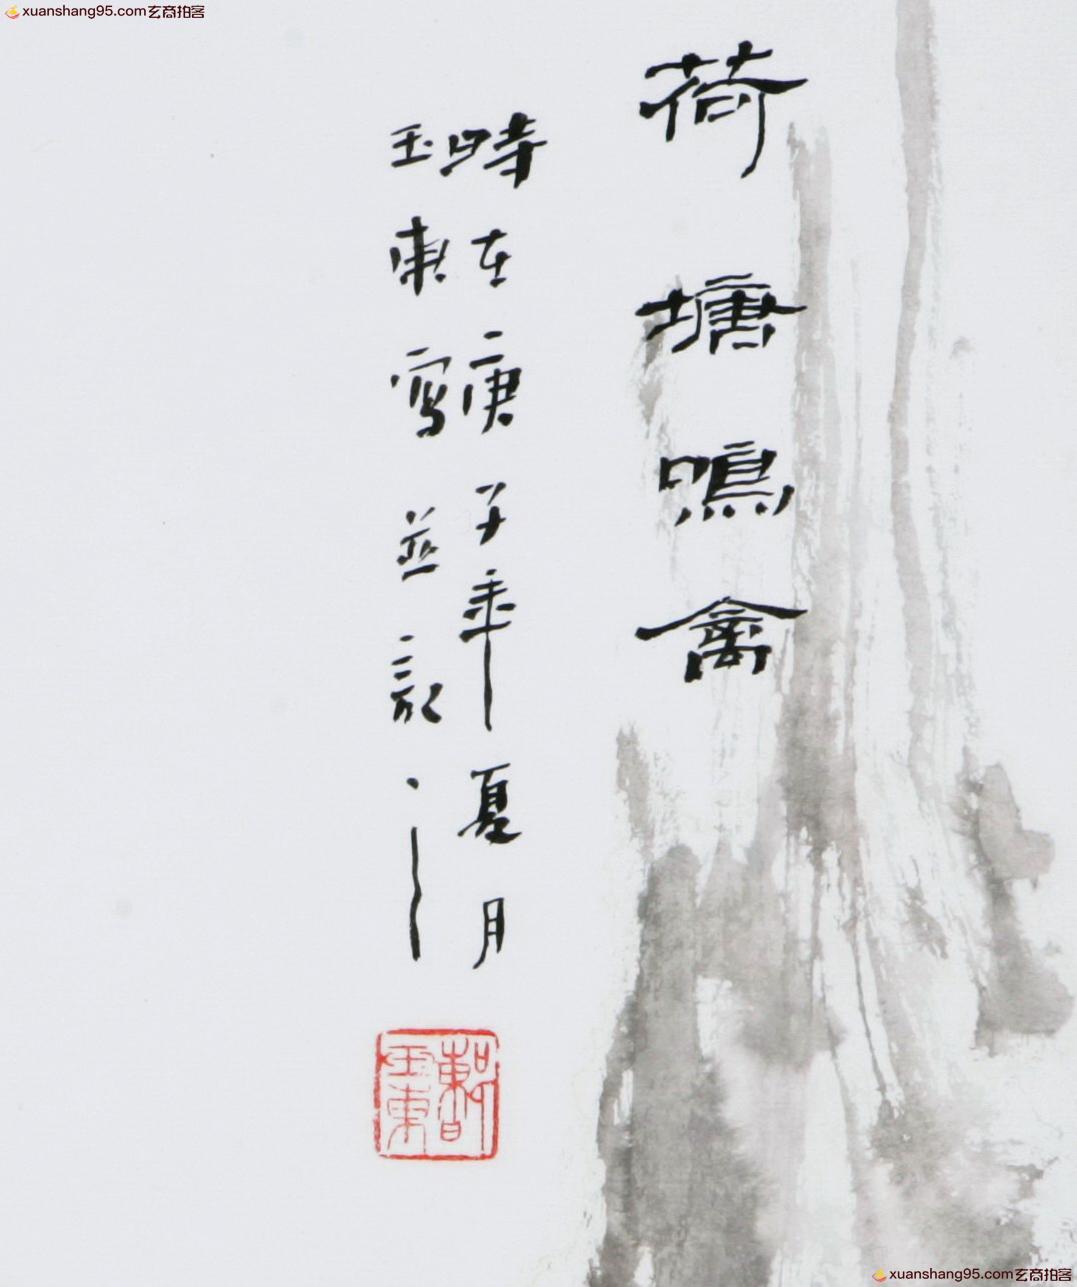 xuanshang95.com玄商拍客
荷塘鳴禽
時在庚子年夏月
玉東寫並記
玉東
xuanshang95.com玄商拍客